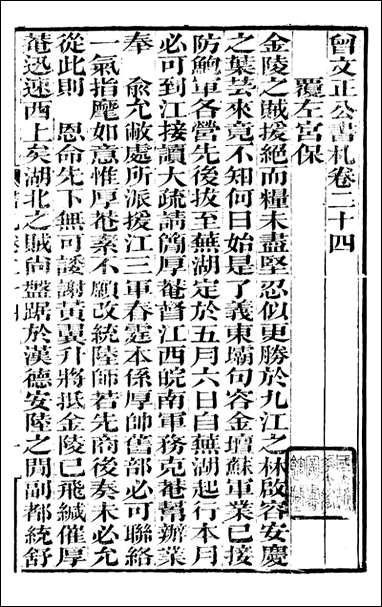 曾文正公書札卷二十四
覆左宮保
金陵之賊援絕而糧未盡堅忍似更勝於九江之林啟容安慶
之葉芸來克不知何日始是了義東壩句容金壇蘇軍業已接
防鮑軍各營先後拔至蕪湖定於五月六日自蕪湖起行本月
必可到江接讀大疏請簡厚菴督江西皖南軍務克菴幫辦業
奉　俞允敝處所派援江三軍春霆本係厚帥舊部必可聯絡
一氣指麾如意惟厚菴素不願改統陸師若先商後奏未必允
從此則　恩命先下無可諉謝黃翼升將抵金陵已飛緘催厚
菴迅速西上矣湖北之賊尚盤踞於漢德安陸之間副都統舒